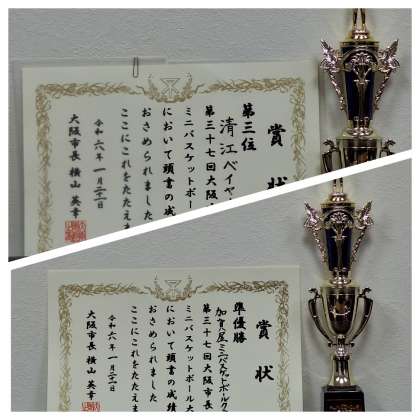 賞状
第三位
清江ベイヤ
第三十七回大阪
ミニバスケットボー
において頭書の成
おさめられました
ここにこれをたたえま
令和六年一月二十一日
大阪市長 横山英幸
賞状
準優勝
加賀屋ミニバスケットボールク
第三十七回大阪市長
ミニバスケットボール大
において頭書の成績
おさめられました
ここにこれをたたえま
令和六年一月二十一日
大阪市長 横山英幸